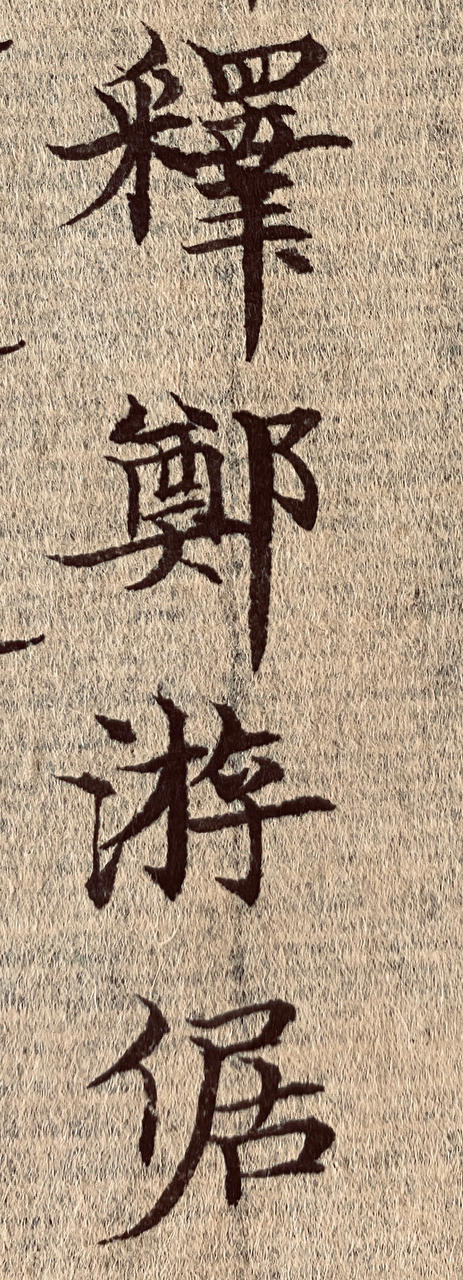 釋鄭游倨